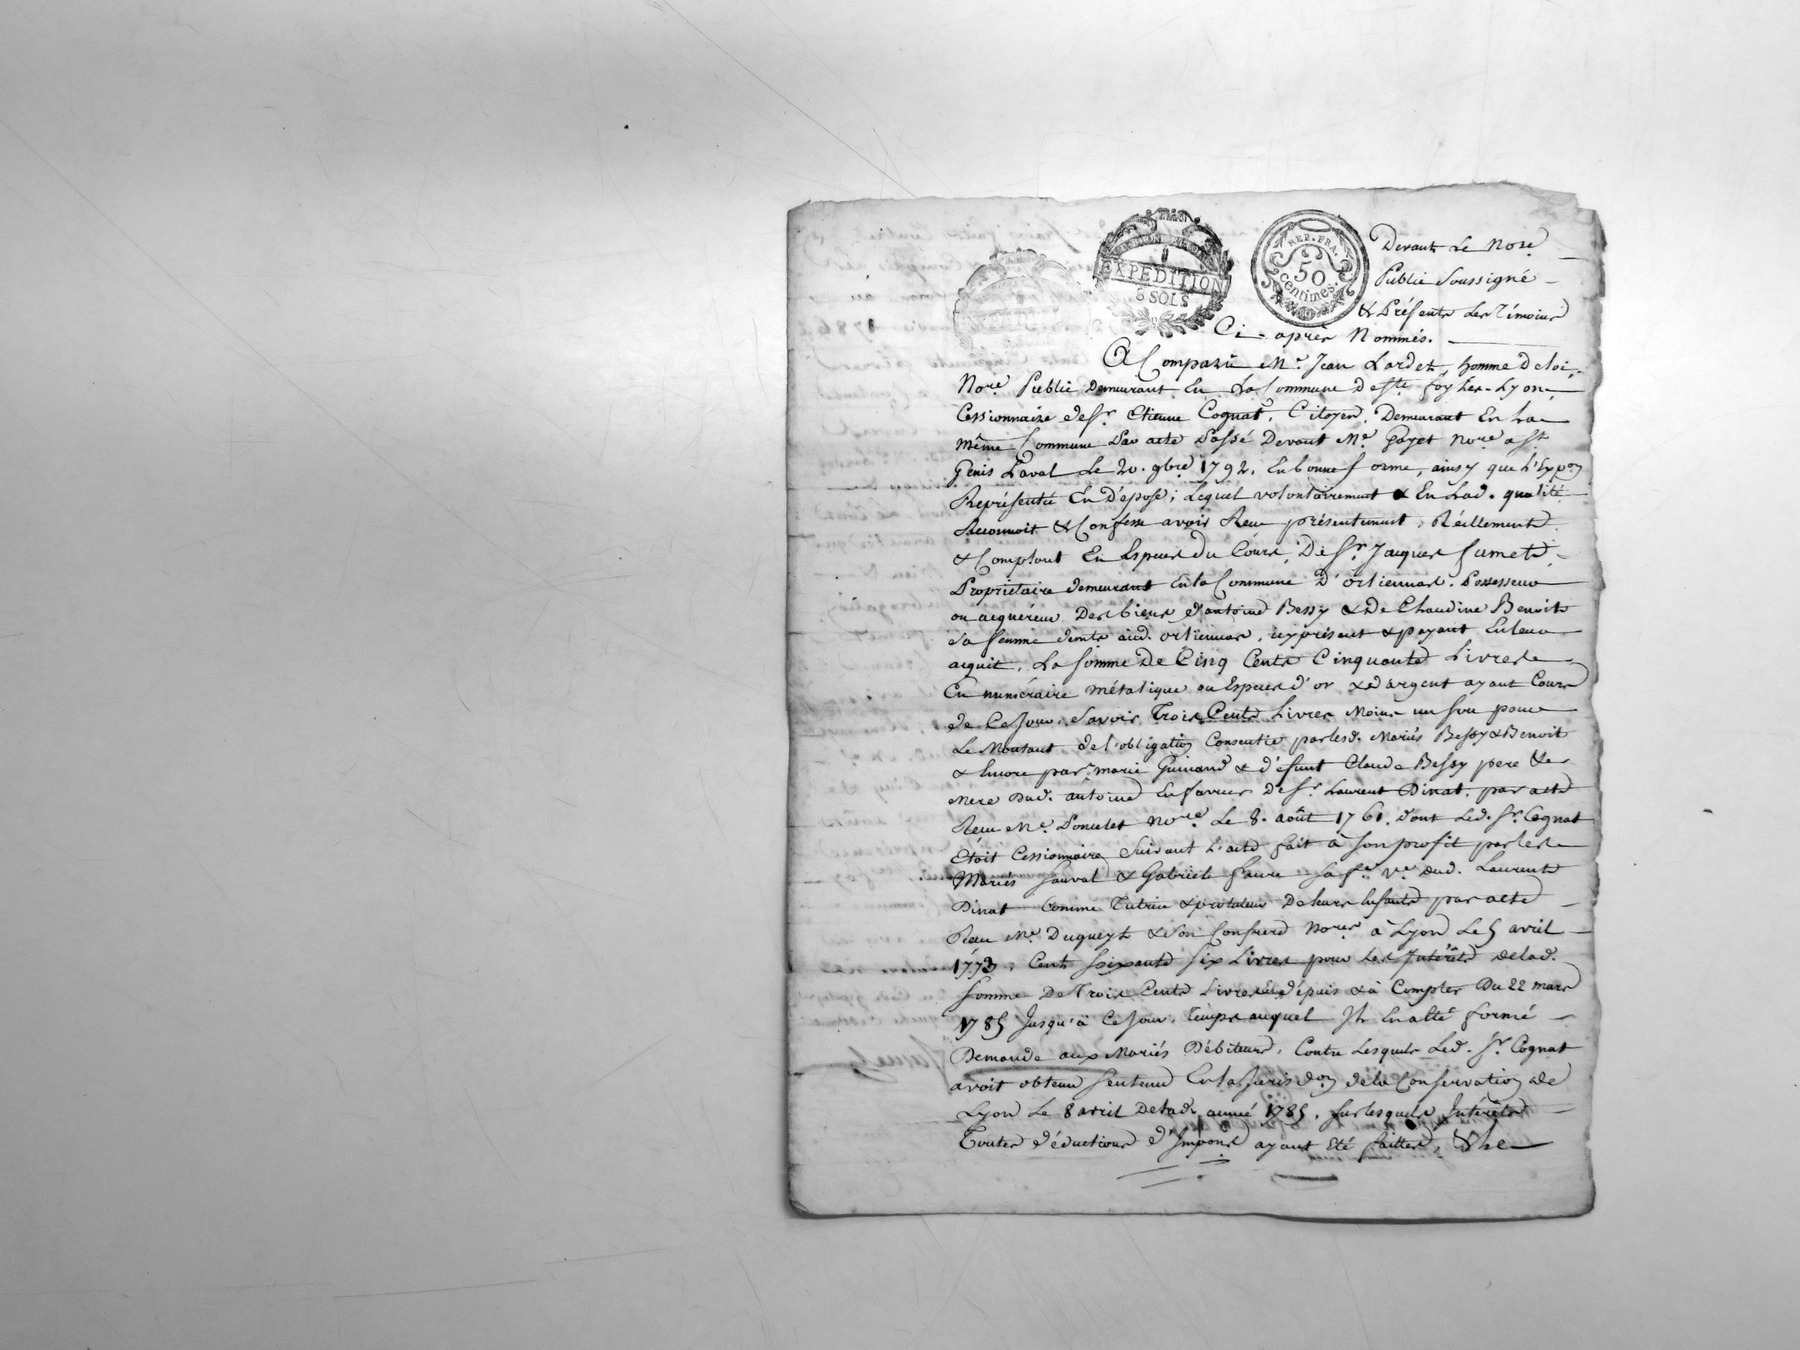 EXPEDITION
8 SOLS
REP. FRA.
50
Centimes.
Devant Le Nore
Public Soussigné
& Présents Les Témoins
Ci-après Nommés.
A Comparu Me. Jean Lardet, homme De loi,
Nore Public Demeurant En La Commune De Ste foy Les-Lyon,
Cessionnaire de Sr. Etienne Cognat, Citoyen, Demeurant En La
même Commune Par acte Passé Devant Me Gayet Nore a St
Genis Laval Le 20. 9bre 1792. En bonne forme, ainsy que L'Expon
Représentée En Dépose; Lequel volontairement & En Lad. qualité
Reconnoit & Confesse avoir Reçu présentement, Réellement
& Comptant En Especes Du Cours De Sr. Jacques fumet,
Propriétaire demeurant En la Commune D'orliennas, Possesseur
ou acquéreur Des biens d'antoine Bessy & De Claudine Benoit
sa femme demts aud. orliennas, icy présent & payant En leur
acquit, La Somme De Cinq Cents Cinquante Livres
En numéraire métalique ou Especes d'or & d'argent ayant Cours
de Ce Jour. Savoir Trois Cents Livres Moins un Sou pour
Le Montant de l'obligation Consentie par lesd. Mariés Bessy & Benoit
& Encore par marie Guinand & défunt Claude Bessy pere &
Mere Dud. antoine En faveur De Sr. Laurent Dinat, par acte
Reçu Me. Poncelet Nore Le 8. août 1761. Dont Led. Sr. Cognat
Etoit Cessionnaire Suivant L'acte fait à Son profit par les
Mariés Sauval & Gabriele faure Sa fe ve. dud. Laurent
Dinat Comme Tutrice & protuteur De leurs Enfants par acte
Reçu Me. Dugueyt & Son Confrere Nores à Lyon Le 5 avril
1773; Cent Soixante Six Livres pour Les Intérêts delad.
Somme De Trois Cents Livres dépuis & à Compter Du 22 mars
1785 Jusqu'à Ce Jour, Temps auquel Il En a Eté formé
Demande aux Mariés Débiteurs, Contre Lesquels Led. Sr. Cognat
avoit obtenu Sentence En la Jurisdon de la Conservation de
Lyon Le 8 avril Delad. année 1785. Sur lesquels Intérêts
Toutes déductions d'Impons ayant Eté faittes, & Le